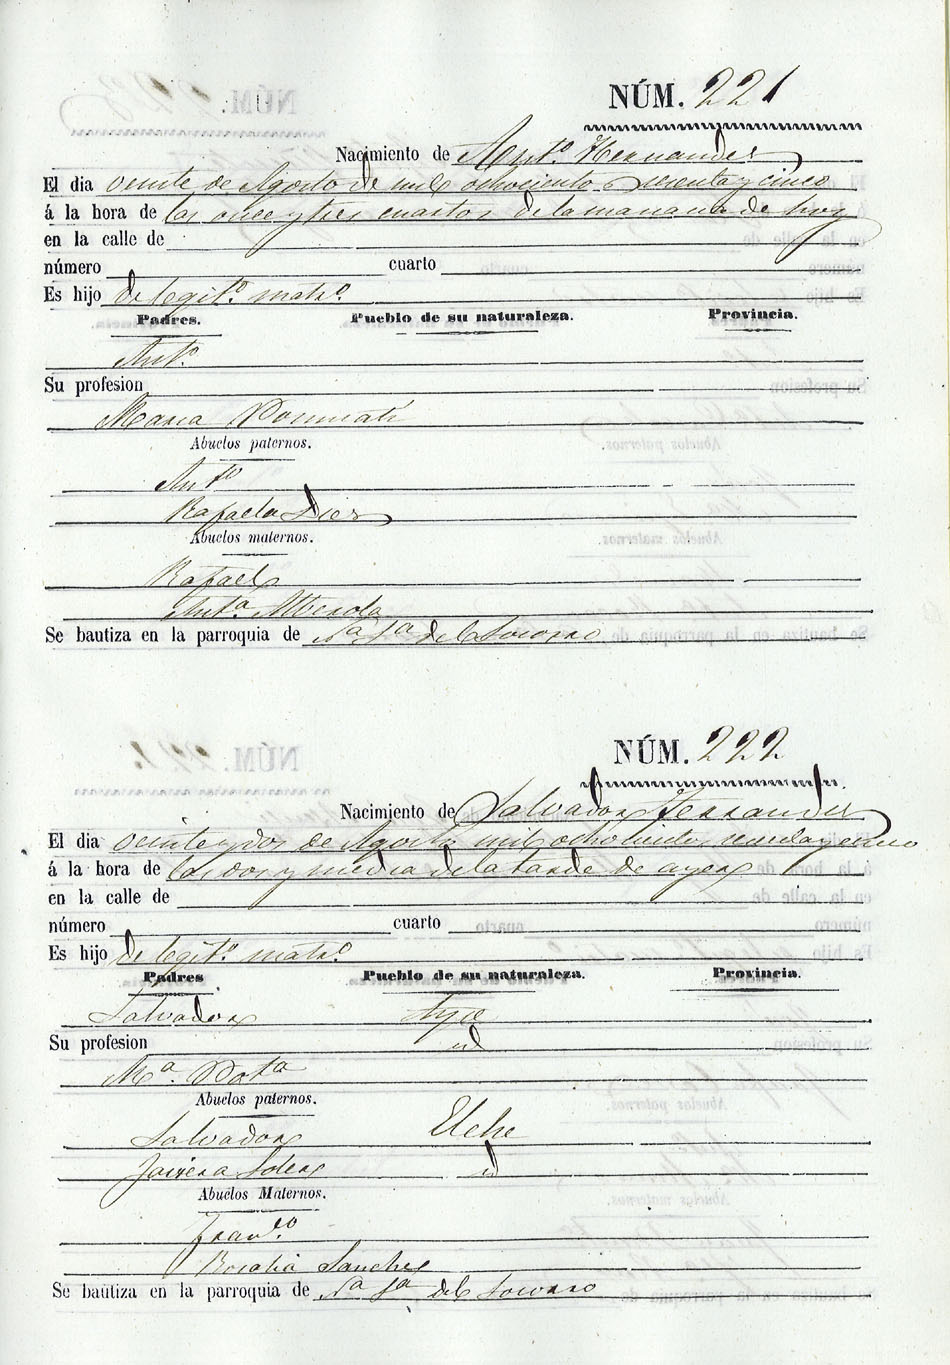 NÚM. 221
Nacimiento de Ant.º Hernandez
El dia veinte de Agosto de mil ochociento sesenta y cinco
á la hora de las once y tres cuartos de la mañana de hoy
en la calle de
número cuarto
Es hijo de legit.º matr.º
Padres. Pueblo de su naturaleza. Provincia.
Ant.º
Su profesion
Maria
Abuelos paternos.
Ant.º
Rafaela Dies
Abuelos maternos.
Rafael
Ant.ª Alberola
Se bautiza en la parroquia de del Socorro
NÚM. 222
Nacimiento de Salvador Fernandez
El dia veinte y dos de Agosto mil ochociento sesenta y cinco
á la hora de las dos y media de la tarde de ayer
en la calle de
número cuarto
Es hijo de legit.º matr.º
Padres Pueblo de su naturaleza. Provincia.
Salvador
Su profesion id
M.ª
Abuelos paternos.
Salvador Elche
Javiera Soler id
Abuelos Maternos.
Fran.co
Rosalia Sanchez
Se bautiza en la parroquia de del Socorro